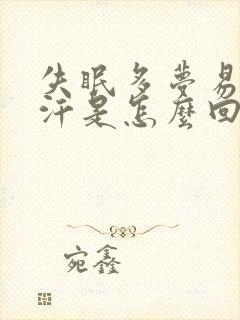 失眠多夢易
汗是怎麼回
宛鑫